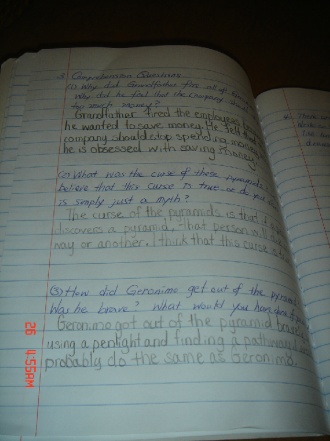 Comprehension Questions
(1) Why did Grandfather fire all of
Why did he feel that the company
so much money?
Grandfather fired the employees
he wanted to save money. He felt that
company should stop spending money
he is obsessed with saving money.
(2) What was the curse of these pyramids
believe that this curse is true or do you
is simply just a myth?
The curse of the pyramids is that if
discovers a pyramid, that person will
way or another. I think that this curse is
(3) How did Geronimo get out of the pyramid
Was he brave? What would you have done
Geronimo got out of the pyramid
using a penlight and finding a pathway
probably do the same as Geronimo.
26 4:55AM